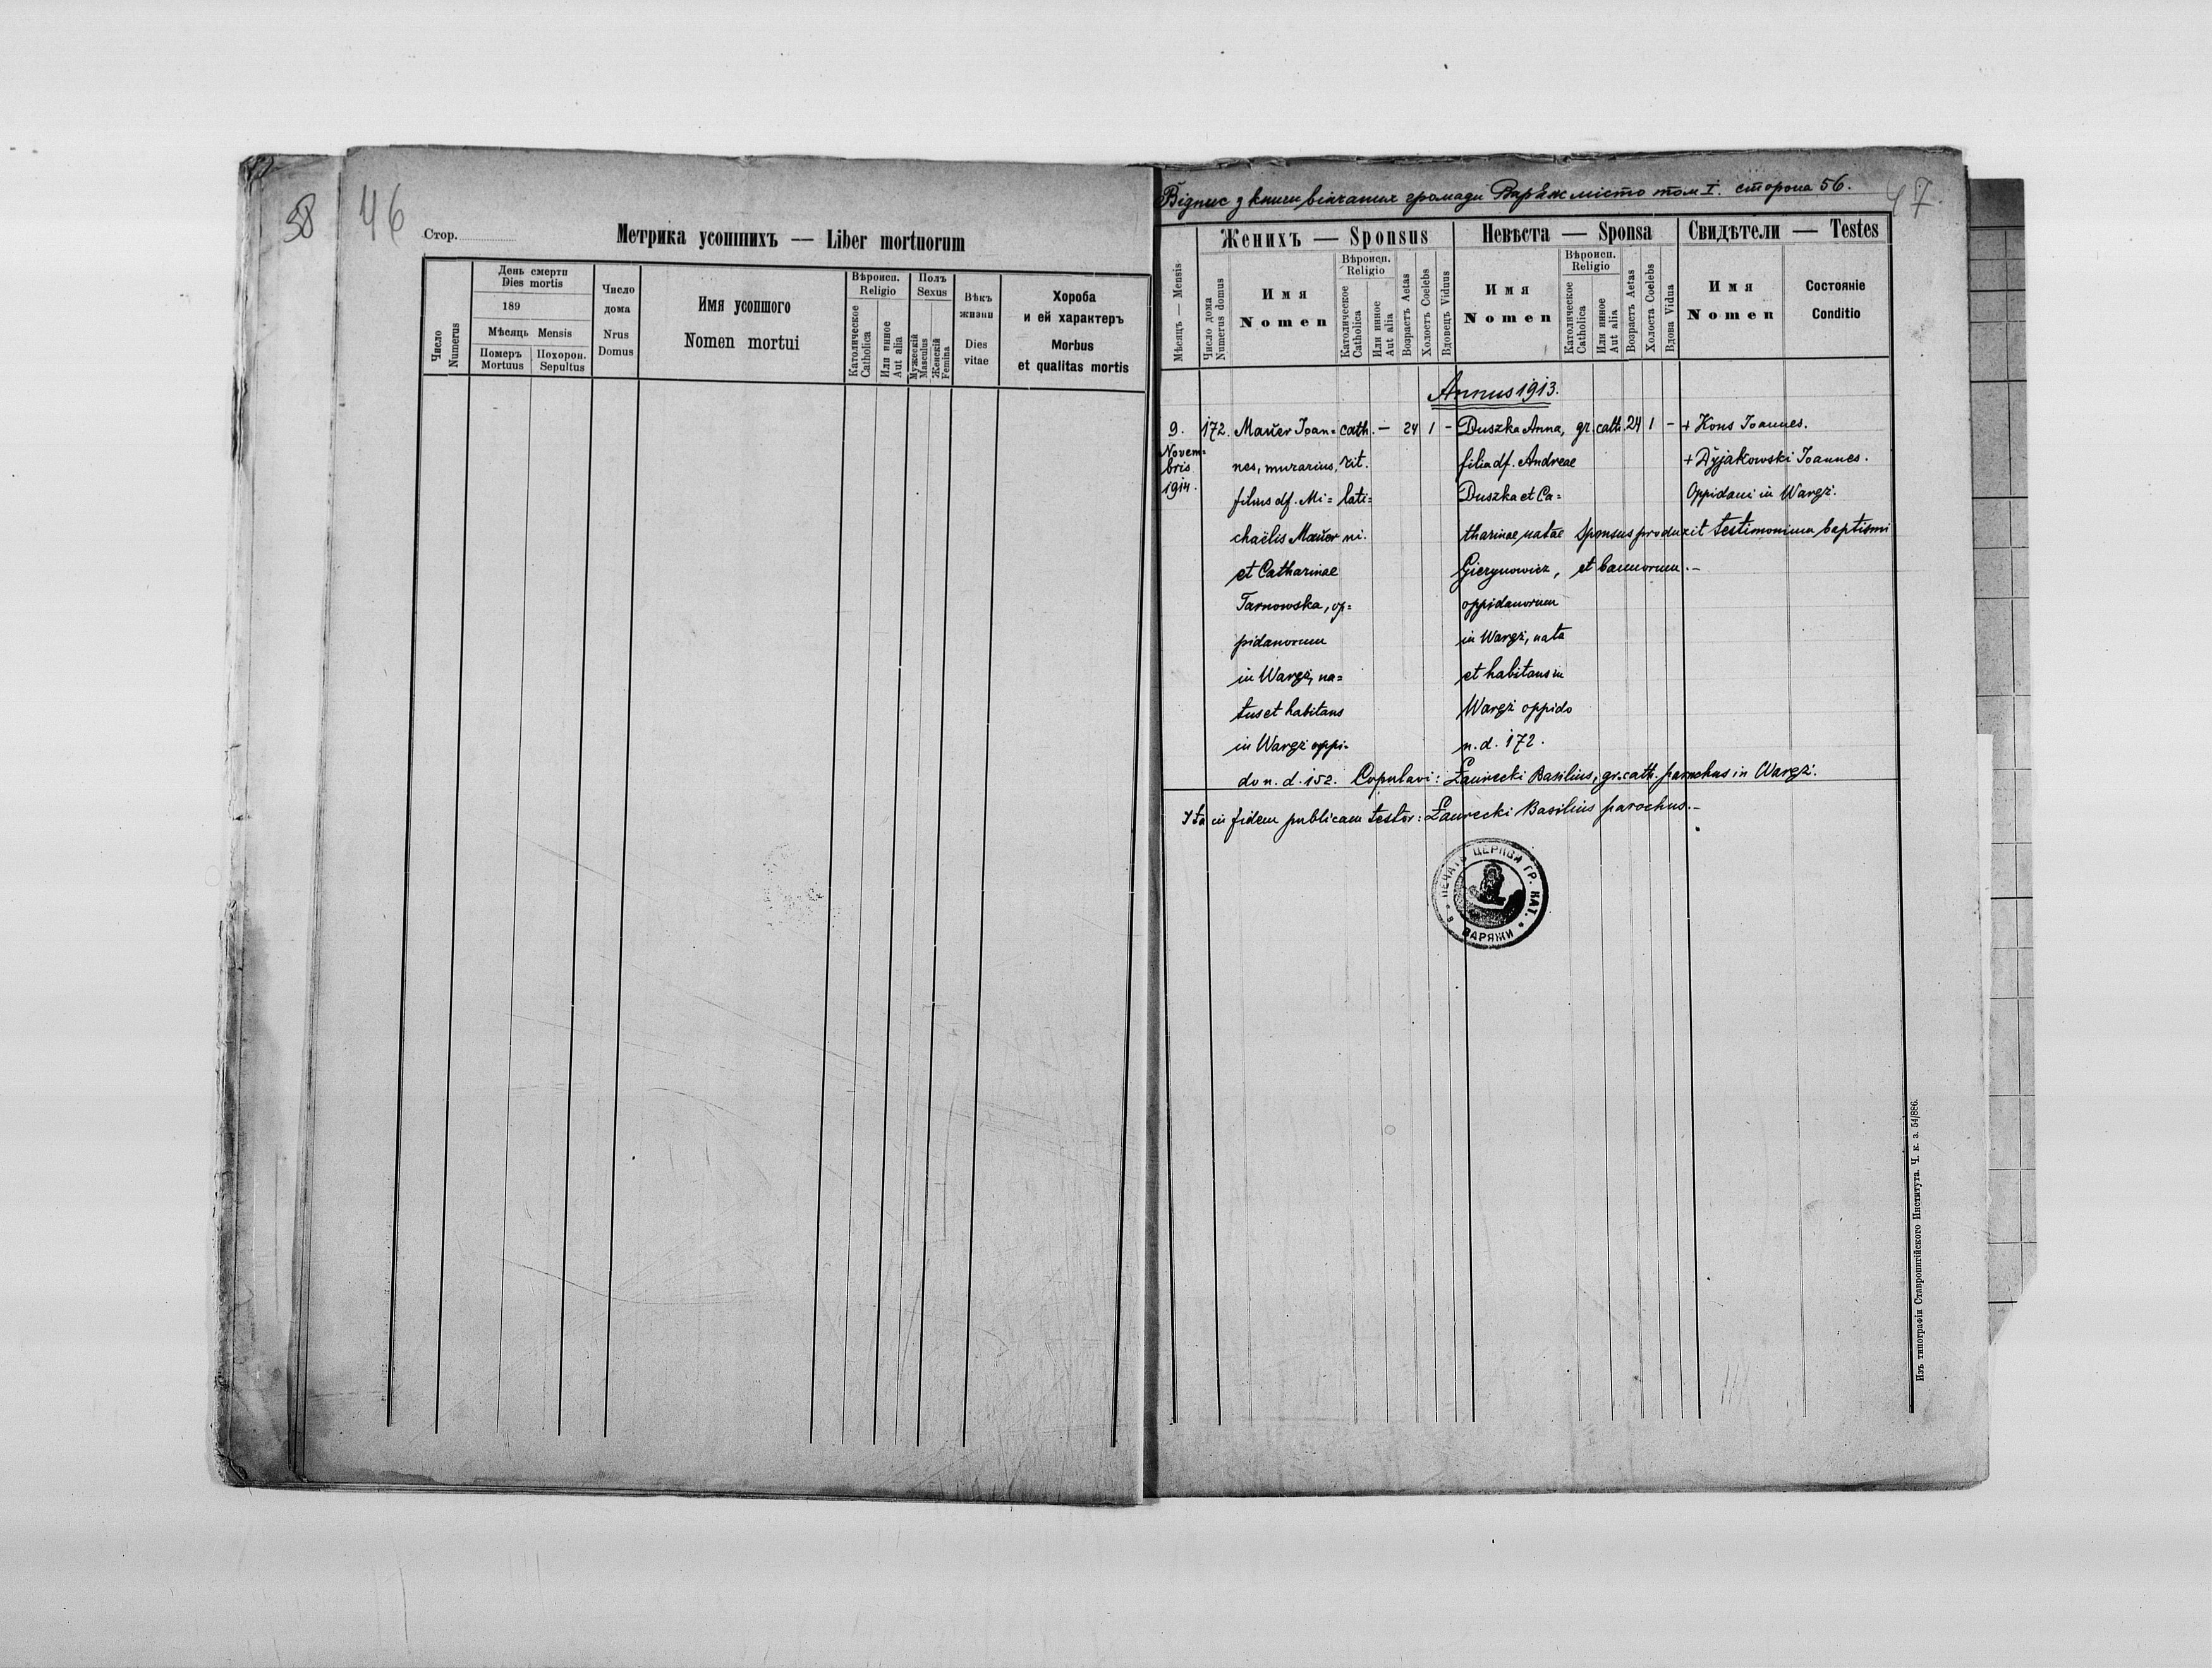 58
46
Стор.
Метрика усопшихъ — Liber mortuorum
Число
Numerus
День смерти
Dies mortis
189
Мѣсяць Mensis
Померъ
Mortuus
Похорон.
Sepultus
Число
дома
Nrus
Domus
Имя усопшого
Nomen mortui
Вѣроисп.
Religio
Католическое
Catholica
Или инное
Aut alia
Полъ
Sexus
Мужескій
Masculus
Женскій
Femina
Вѣкъ
жизни
Dies
vitae
Хороба
и ей характеръ
Morbus
et qualitas mortis
Відпис з книги вінчаних громади Варяж місто том I. сторона 56.
47.
Женихъ — Sponsus
Невѣста — Sponsa
Свидѣтели — Testes
Мѣсяцъ — Mensis
Число дома
Numerus domus
Имя
Nomen
Вѣроисп.
Religio
Католическое
Catholica
Или инное
Aut alia
Возрастъ Aetas
Холостъ Coelebs
Вдовецъ Viduus
Имя
Nomen
Вѣроисп.
Religio
Католическое
Catholica
Или инное
Aut alia
Возрастъ Aetas
Холоста Coelebs
Вдова Vidua
Имя
Nomen
Состояніе
Conditio
Annus 1913.
9. 172. Mauer Joan= cath. — 24 1 - Duszka Anna, gr. cath. 24 1 - + Kons Joannes.
Novem=
bris nes, murarius, rit. filia df. Andreae + Dyjakowski Joannes.
1914. filius df. Mi= lati= Duszka et Ca= Oppidani in Waręż.
chaëlis Mauer ni. tharinae natae Sponsus produxit testimonium baptismi
et Catharinae Gierynowicz, et bannorum.-
Tarnowska, op= oppidanorum
pidanorum in Waręż, nata
in Waręż, na= et habitans in
tus et habitans Waręż oppido
in Waręż oppi- n. d. 172.
do n. d. 152. Copulavi: Ławrecki Basilius, gr. cath. parochus in Waręż.
Ita in fidem publicam testor: Ławrecki Basilius parochus.-
ПЕЧАТЬ ЦЕРКВИ ГР. КАТ. * В ВАРЯЖИ *
Изъ типографіи Ставропигійского Института. Ч. к. а. 54/886.